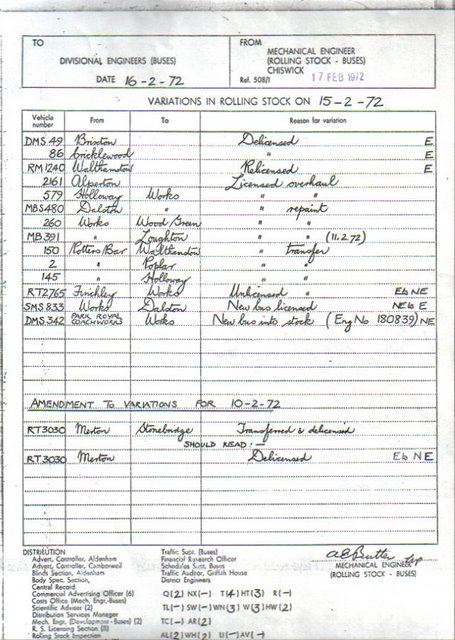 TO
DIVISIONAL ENGINEERS (BUSES)
DATE 16-2-72
FROM
MECHANICAL ENGINEER
(ROLLING STOCK - BUSES)
CHISWICK
Ref. 508/1 17 FEB 1972
VARIATIONS IN ROLLING STOCK ON 15-2-72
Vehicle number From To Reason for variation
DMS 49 Brixton Delicensed E
86 Cricklewood " E
RM 1240 Walthamstow Relicensed E
2161 Alperton Licensed overhaul
579 Holloway Works " "
MBS 480 Dalston " " repaint
260 Works Wood Green " "
MB 391 " Loughton " " (11.2.72)
150 Potters Bar Walthamstow " transfer
2 " Poplar " "
145 " Holloway " "
RT 2765 Finchley Works Unlicensed " Eb NE
SMS 833 Works Dalston New bus licensed NEb E
DMS 342 PARK ROYAL COACHWORKS Works New bus into stock (Eng No 180839) NE
AMENDMENT TO VARIATIONS FOR 10-2-72
RT 3030 Merton Stonebridge Transferred & delicensed
SHOULD READ :-
RT 3030 Merton Delicensed Eb NE
DISTRIBUTION
Advert. Controller, Aldenham
Advert. Controller, Camberwell
Blinds Section, Aldenham
Body Spec. Section,
Central Record
Commercial Advertising Officer (6)
Costs Office (Mech. Engr.-Buses)
Scientific Adviser (2)
Distribution Services Manager
Mech. Engr. (Development - Buses) (2)
R. S. Licensing Section (3)
Rolling Stock Inspection
Traffic Supt. (Buses)
Financial Research Officer
Schedules Supt. Buses
Traffic Auditor, Griffith House
District Engineers
Q(2) NX(-) T(4) HT(3) R(-)
TL(-) SW(-) WN(3) W(3) HW(2)
TC(-) AR(2)
AL(2) WH(2) U(-) AV(-)
MECHANICAL ENGINEER
(ROLLING STOCK - BUSES)